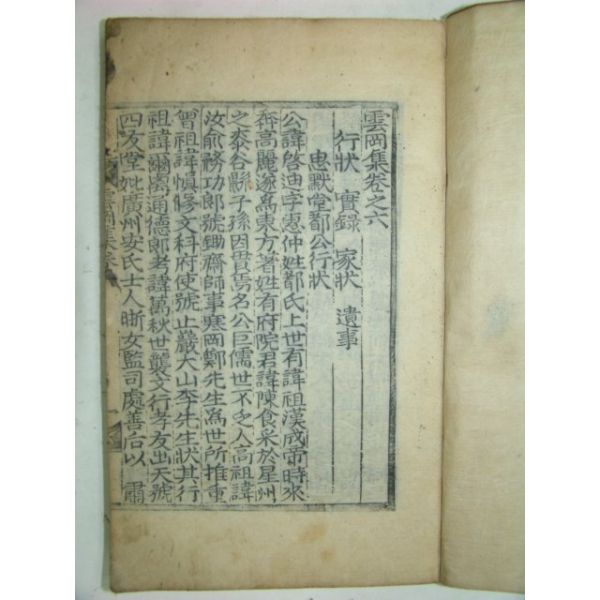 雲岡集卷之六
行狀 實錄 家狀 遺事
忠默堂都公行狀
公諱啓迪字惠仲姓都氏上世有諱祖漢成帝時來
奔高麗遂爲東方著姓有府院君諱陳食采於星州
之八莒縣子孫因貫焉名公巨儒世不乏人高祖諱
汝兪務功郎號鋤齋師事寒岡鄭先生爲世所推重
曾祖諱愼修文科府使號止巖大山李先生狀其行
祖諱爾卨通德郎考諱萬秋世襲文行孝友出天號
四友堂妣廣州安氏士人晣女監司處善后以 肅
雲岡集